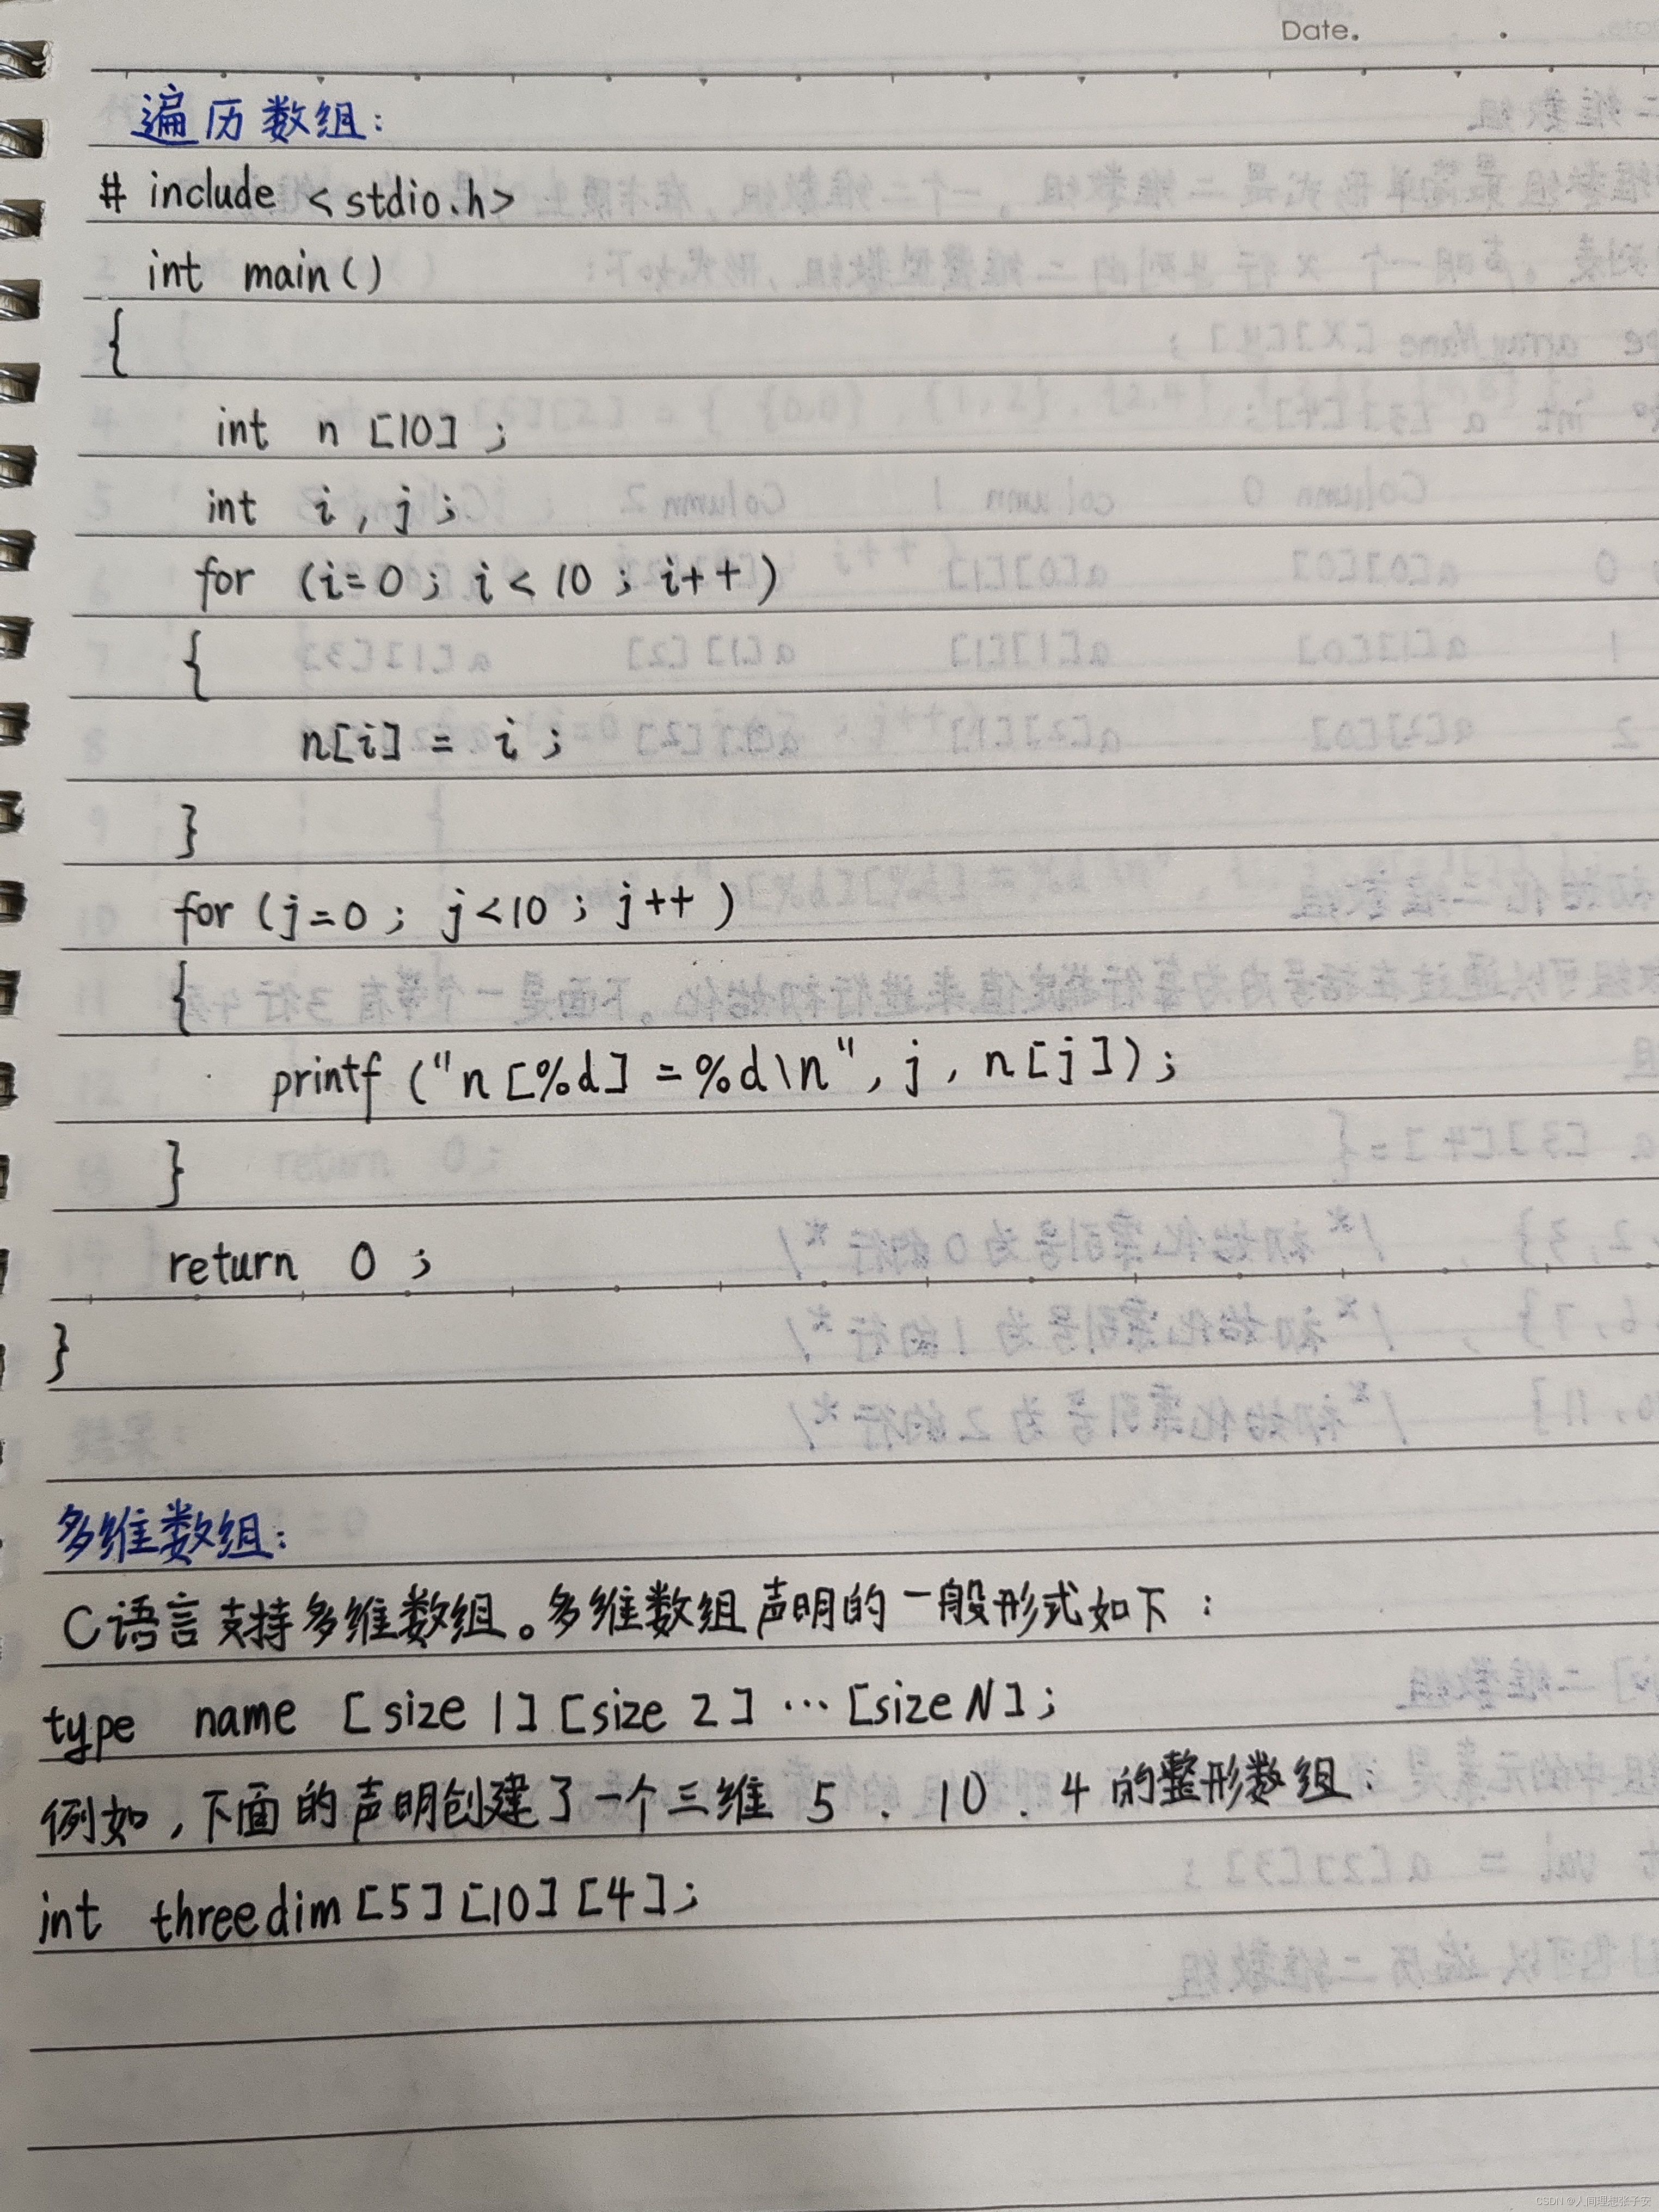 Date.
遍历数组:
# include <stdio.h>
int main()
{
int n [10] ;
int i , j ;
for (i=0 ; i < 10 ; i++)
{
n[i] = i ;
}
for (j=0 ; j<10 ; j++ )
{
printf ("n [%d] =%d\n", j , n [j] ) ;
}
return 0 ;
}
多维数组:
C语言支持多维数组。多维数组声明的一般形式如下：
type name [size 1] [size 2] … [size N] ;
例如，下面的声明创建了一个三维 5 . 10 . 4 的整形数组：
int threedim [5] [10] [4] ;
CSDN @人间理想张子安